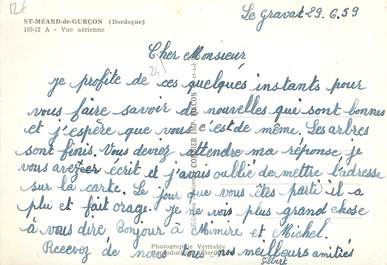 12€
ST-MÉARD-de-GURÇON (Dordogne)
103-12 A - Vue aérienne
Le gravat 29.6.59
Cher Monsieur
24
je profite de ces quelques instants pour
vous faire savoir de nouvelles qui sont bonnes
et j'espère que vous c'est de même. Les arbres
sont finis. Vous devez attendre ma réponse je
vous avez écrit et j'avais oublié de mettre l'adresse
sur la carte. Le jour que vous êtes parti il a
plu et fait orage. Je ne vois plus grand chose
à vous dire Bonjour à Mimire et Michel
Photographie Véritable
Recevez de nous tous nos meilleurs amitiés
Reproduction interdite